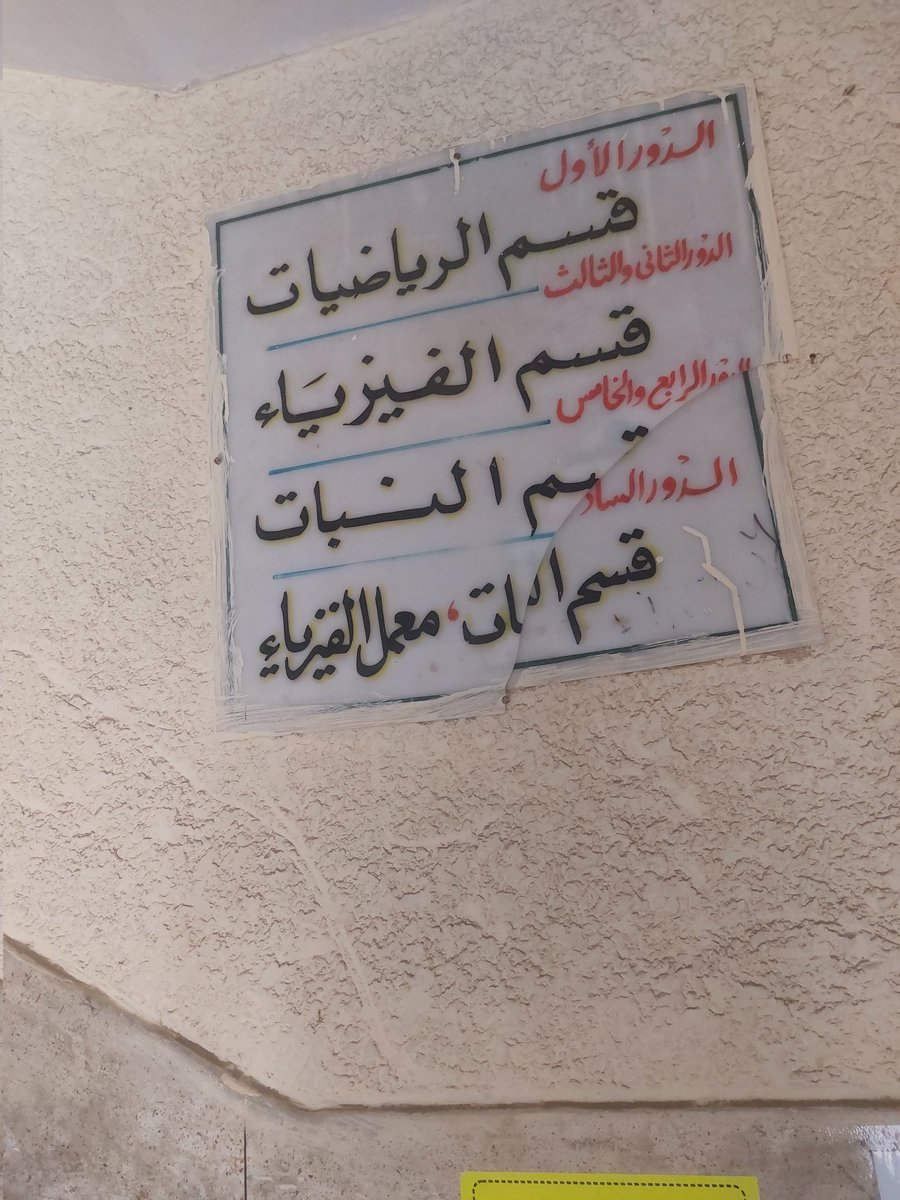 الدور الأول
قسم الرياضيات
الدور الثانى والثالث
قسم الفيزياء
الدور الرابع والخامس
قسم النبات
الدور الساد
قسم معمل الفيزياء